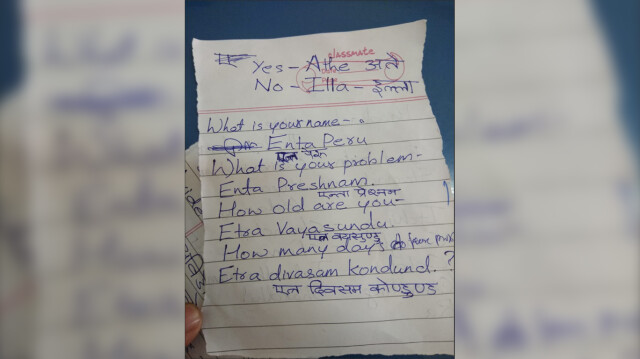 classmate
Yes - Athe अते
No - Illa - ईल्ला
What is your name -
Enta Peru
What is your problem -
Enta Preshnam.
How old are you -
Etra Vayasundu.
How many days
Etra divasam kondund. ?
एत्र दिवसम कोण्डुण्ड